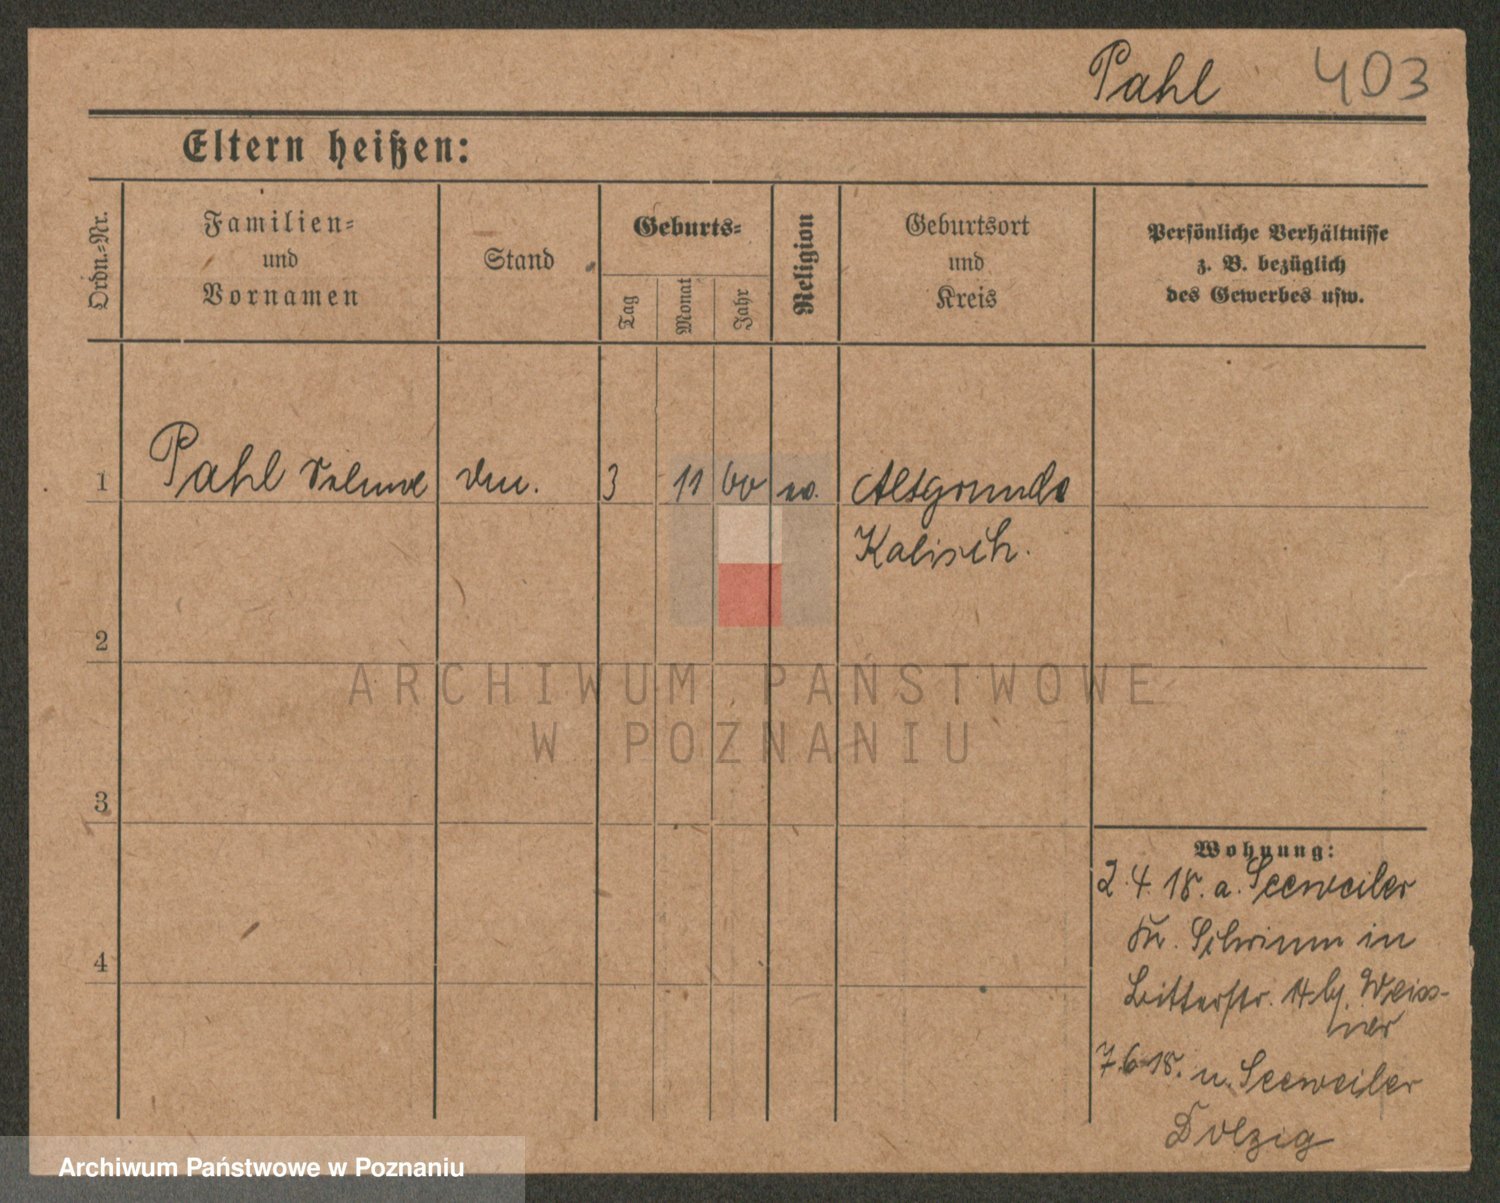 Pahl 403
Eltern heißen:
Ordn.-Nr.
Familien-
und
Vornamen
Stand
Geburts-
Tag
Monat
Jahr
Religion
Geburtsort
und
Kreis
Persönliche Verhältnisse
z. B. bezüglich
des Gewerbes usw.
1 Pahl 3 11 60 Altgrunde
Kalisch.
2
3
4
ARCHIWUM PAŃSTWOWE
W POZNANIU
Wohnung:
2.4.18. a. Seeweiler
Kr. Schrimm in
Ritterstr. bj. Weiss-
ner
7.6.18. n. Seeweiler
Dolzig
Archiwum Państwowe w Poznaniu